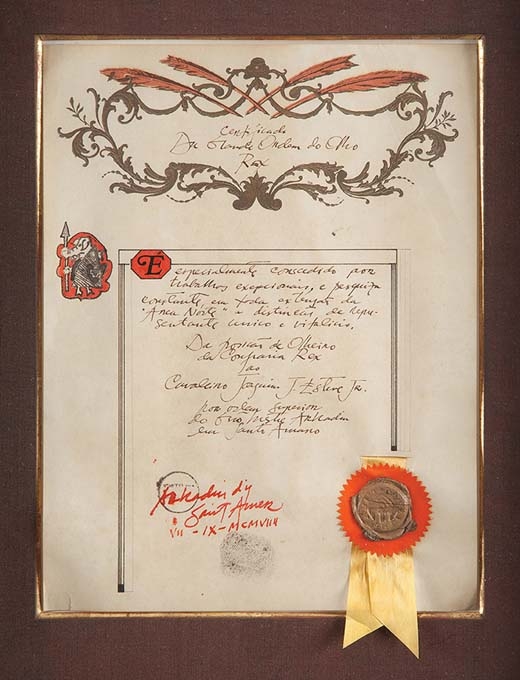 Certificado
Da Grande Ordem do Olho
Rex
É especialmente conscedido por
trabalhos exepcionais, e pesquiza
constante, em toda extensão da
"Area Norte" a distincão de Repre-
sentante unico e vitalicio.
Da posisão de Olheiro
da Confraria Rex
ao
Cavaleiro Joaquim J. Esteve Jr.
por ordem superior
do Grão Mestre Arkadin
em Santo Amaro
Arkadin d'y
Saint Amer
VII - IX - MCMVIII